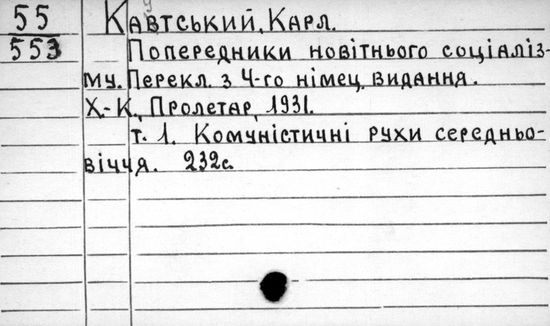 55 Кавтський, Карл.
553 Попередники новітнього соціаліз-
му. Перекл. з 4-го німец. видання.
Х.-К., Пролетар, 1931.
т. 1. Комуністичні рухи середньо-
віччя. 232с.